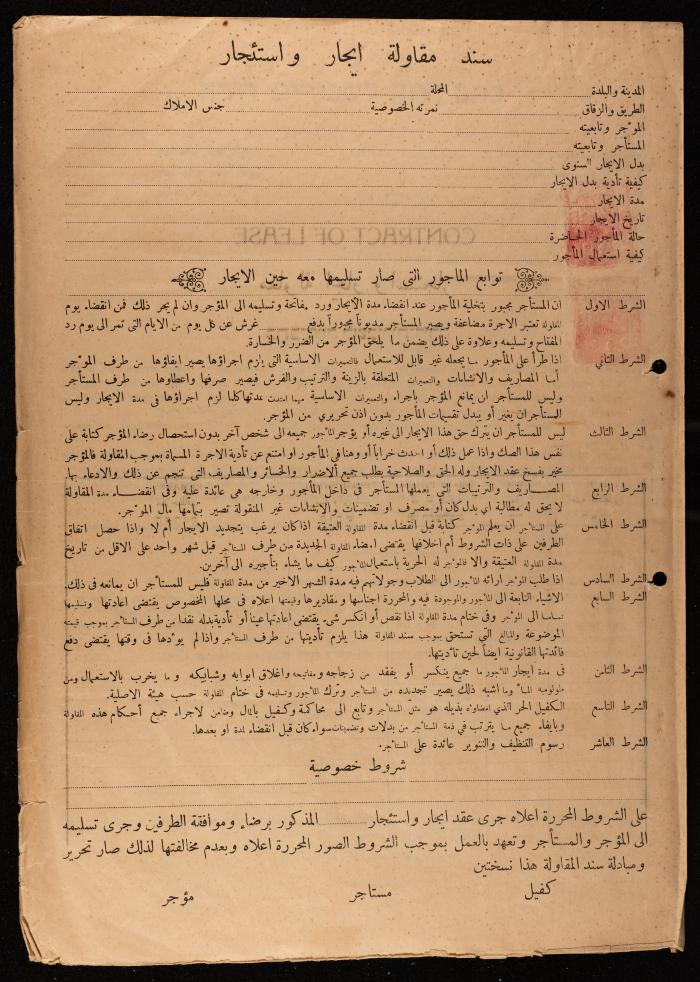 سند مقاولة ايجار واستئجار
المدينة والبلدة المحلة
الطريق والزقاق نمرته الخصوصية جنس الاملاك
المؤجر وتابعيته
المستأجر وتابعيته
بدل الايجار السنوى
كيفية تأدية بدل الايجار
مدة الايجار
تاريخ الايجار
حالة المأجور الحاضرة
CONTRACT OF LEASE
كيفية استعمال المأجور
توابع المأجور التى صار تسليمها معه حين الايجار
الشرط الاول ان المستأجر مجبور بتخلية المأجور عند انقضاء مدة الايجار ورد مفاتحة وتسليمه الى المؤجر وان لم يجر ذلك فمن انقضاء يوم
المقاولة تعتبر الاجرة مضاعفة ويصير المستأجر مديوناً مجبوراً بدفع غرش عن كل يوم من الايام التى تمر الى يوم رد
المفتاح وتسليمه وعلاوة على ذلك يضمن ما يلحق المؤجر من الضرر والخسارة.
الشرط الثانى اذا طرأ على المأجور ما يجعله غير قابل للاستعمال فالتعميرات الاساسية التى يلزم اجراؤها يصير ايفاؤها من طرف المؤجر
أما المصاريف والانشاءات والتعميرات المتعلقة بالزينة والترتيب والفرش فيصير صرفها واعطاوها من طرف المستأجر
وليس للمستأجر ان يمانع المؤجر باجراء والتعميرات الاساسية مهما امتدت مدتها كلما لزم اجراؤها فى مدة الايجار وليس
للمستأجر ان يغير أو يبدل تقسيمات المأجور بدون اذن تحريري من المؤجر.
الشرط الثالث ليس للمستأجر ان يترك حق هذا الايجار الى غيره أو يؤجر المأجور جميعه الى شخص آخر بدون استحصال رضاء المؤجر كتابة على
نفس هذا الصك واذا عمل ذلك أو احدث خراباً أو وهنا فى المأجور او امتنع عن تأدية الاجرة المسماة بموجب المقاولة فالمؤجر
مخير بفسخ عقد الايجار وله الحق والصلاحية بطلب جميع الاضرار والخسائر والمصاريف التى تنجم عن ذلك والادعاء بها.
الشرط الرابع المصاريف والترتيبات التى يعملها المستأجر فى داخل المأجور وخارجه هى عائدة عليه وفى انقضاء مدة المقاولة
لا يحق له مطالبة اي بدل كان أو مصرف او تضمينات والانشاءات غير المنقولة تصير بتمامها مال المؤجر.
الشرط الخامس على المستأجر ان يعلم المؤجر كتابة قبل انقضاء مدة المقاولة العتيقة اذا كان يرغب بتجديد الايجار أم لا واذا حصل اتفاق
الطرفين على ذات الشروط أم اخلافها يقتضى امضاء المقاولة الجديدة من طرف المستأجر قبل شهر واحد على الاقل من تاريخ
مدة المقاولة العتيقة والا فالمؤجر له الحرية باستعمال المأجور كيف ما يشاء بتأجيره الى آخرين.
الشرط السادس اذا طلب المؤجر ارائه المأجور الى الطلاب وجولانهم فيه مدة الشهر الاخير من مدة المقاولة فليس للمستأجر ان يمانعه فى ذلك.
الشرط السابع الاشياء التابعة الى المأجور والموجودة فيه والمحررة اجناسها ومقاديرها وقيمتها اعلاه فى محلها المخصوص يقتضى اعادتها وتسليمها
تماما الى المؤجر وفى ختام مدة المقاولة اذا نقص أو انكسر شئ يقتضى اعادتها عيناً أو تأدية بدله نقدا من طرف المستأجر بموجب قيمته
الموضوعة والمبالغ التى تستحق بموجب سند المقاولة هذا يلزم تأديتها من طرف المستأجر واذا لم يؤدها فى وقتها يقتضى دفع
فائدتها القانونية ايضاً لحين تأديتها.
الشرط الثامن فى مدة ايجار المأجور ما جميع ينكسر أو يفقد من زجاجه ومفاتيحه واغلاق ابوابه وشبابيكه و ما يخرب بالاستعمال ومن
طولومبه الماء وما اشبه ذلك يصير تجديده من المستأجر وترك المأجور وتسليمه فى ختام المقاولة حسب هيئة الاصلية.
الشرط التاسع الكفيل الحر الذى امضاؤه بذيله هو مثل المستأجر وتابع الى محاكمة وكفيل بالمال وضامن لاجراء جميع أحكام هذه المقاولة
وبايفاء جميع ما يترتب فى ذمة المستأجر من بدلات وتضمينات سواء كان قبل انقضاء المدة او بعدها.
الشرط العاشر رسوم التنظيف والتنوير عائدة على المستأجر.
شروط خصوصية
على الشروط المحررة اعلاه جرى عقد ايجار واستئجار المذكور برضاء وموافقة الطرفين وجرى تسليمه
الى المؤجر والمستأجر وتعهد بالعمل بموجب الشروط الصور المحررة اعلاه وبعدم مخالفتها لذلك صار تحرير
ومبادلة سند المقاولة هذا نسختين
كفيل مستاجر مؤجر